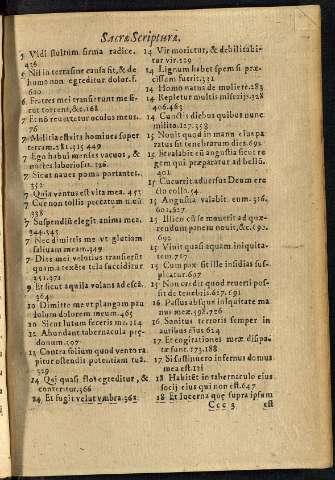 Sacræ Scripturæ.
5 Vidi stultum firma radice.
426
5 Nil in terra sine causa fit, & de
homo non egreditur dolor. f.
600
6 Fratres mei transierunt me si-
cut torrens, &c. 168
7 Et nõ revertetur oculus meus.
76
7 Militia est vita hominis super
terram. 281. 315 449
7 Ego habui menses vacuos, &
noctes laboriosas. 126
7 Sicut naues poma portantes.
352
7 Quia ventus est vita mea. 453
7 Cur non tollis peccatum
338
7 Suspendiũ elegit anima mea
344. 345
7 Nec dimittis me vt glutiam
salivam meam. 349
7 Dies mei velotius transierũt
quam a texẽte tela succiditur
351. 371
9 Et sicut aquila volans ad escã.
364
10 Dimitte me vt plangam pau
lulum dolorem meum. 465
10 Sicut lutum feceris me. 114
12 Abundant tabernacula præ-
donum. 197
13 Contra folium quod vento ra
pitur ostendis potentiam tuã.
329
14 Qui quasi flos egreditur, &
conteritur. 366
14 Et fugit velut vmbra. 362
14 Vir morietur, & debilitabi-
tur vir. 329
14 Lignum habet spem si præ-
cissum fuerit. 331
14 Homo natus de muliere. 283
14 Repletur multis miserijs. 328
406. 463
14 Cunctis diebus quibus nunc
milito. 127. 358
15 Novit quod in manu eius pa-
ratus sit tenebrarum dies. 692
15 Et valabit eũ angustia sicut re
gem qui præparatur ad bellũ.
401
15 Cucurrit adversus Deum ere
cto collo. 54
15 Angustia valabit eum. 316.
601. 617
15 Illico cũ se moverit ad quæ-
rendum panem novit, &c. 690.
692
15 Vinit quasi aquam iniquita-
tem. 717
15 Cum pax sit ille insidias sus-
picatur. 697
15 Non credit quod reuerti pos-
sit de tenebris. 617. 691
16 Passus absque iniquitate ma
nus meæ. 398. 726
16 Sonitus terroris semper in
auribus eius 614
17 Et cogitationes meæ dissipa-
tæ sunt. 173. 188
17 Si sustinuero infernus domus
mea est. 121
18 Habitẽt in tabernaculo eius
socij eius qui non est. 647
18 Et lucerna quę supra ipsum
Ccc 3 est